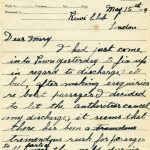 May 15th 19
Rive Club
London
Dear Mary
I had just come
into Town yesterday to fix up
in regard to discharge; etc
but, after making enquiries
re boat passages I decided
to let the authorities cancel
my discharge, it seems that
there has been a tremendous
rush for passages